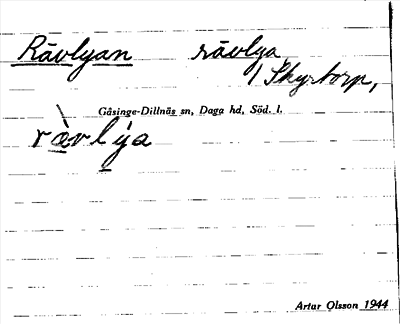 Rävlyan rävlya
/ Skyrtorp,
Gåsinge-Dillnäs sn, Daga hd, Söd. l.
ràvlýa
Artar Olsson 1944